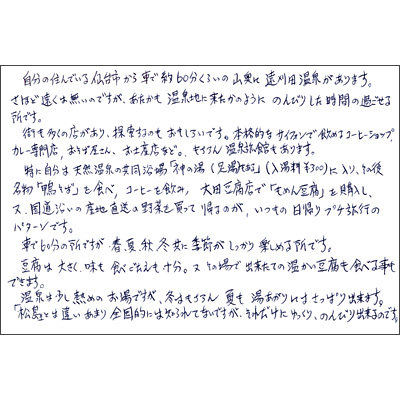 自分の住んでいる仙台市から車で約60分くらいの山奥に遠刈田温泉があります。
さほど遠くは無いのですが、あたかも温泉地に来たかのようにのんびりした時間の過ごせる
所です。
街も多くの店があり、探索するのもおもしろいです。本格的なサイフォンで飲めるコーヒーショップ、
カレー専門店、おそば屋さん、お土産店など。もちろん温泉旅館もあります。
特に自分は天然温泉の共同浴場「神の湯(足湯も有る)」(入湯料¥300)に入り、その後
名物「鴨そば」を食べ、コーヒーを飲み、大田豆腐店で「もめん豆腐」を購入し、
又、国道沿いの産地直送の野菜を買って帰るのが、いつもの日帰りプチ旅行の
パターンです。
車で60分の所ですが、春、夏、秋、冬共に季節がしっかり楽しめる所です。
豆腐は大きく、味も食べごたえも十分。又その場で出来たての温かい豆腐も食べる事も
できます。
温泉は少し熱めのお湯ですが、冬はもちろん夏も湯あがりはさっぱり出来ます。
「松島」とは違いあまり全国的には知られてないですが、それだけにゆっくり、のんびり出来るのです。